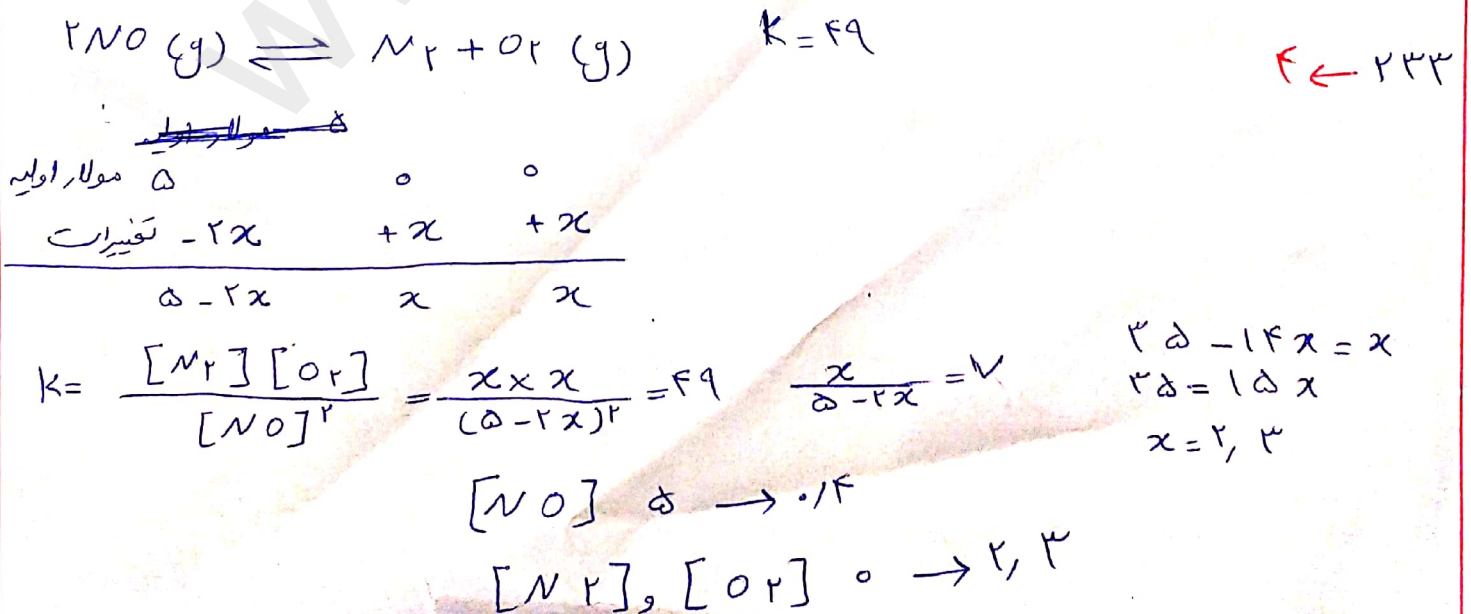 ۲NO (g) ⇌ N۲ + O۲ (g) K = ۴۹
۴ ← ۲۳۳
مولار اولیه ۵ ۰ ۰
تغییرات -۲x +x +x
۵ - ۲x x x
K = [N۲][O۲] / [NO]^۲ = x × x / (۵ - ۲x)^۲ = ۴۹ x / (۵ - ۲x) = ۷
۳۵ - ۱۴x = x
۳۵ = ۱۵x
x = ۲,۳
[NO] ۵ → ۰/۴
[N۲] و [O۲] ۰ → ۲,۳